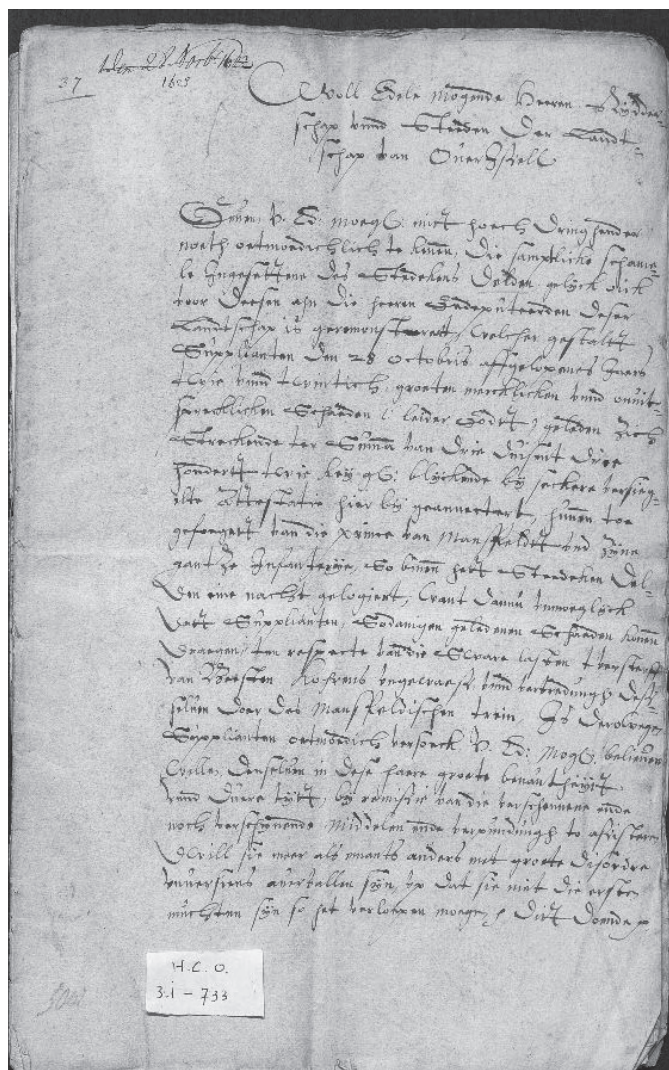 37
den 28 Octob 1623
1623
Woll Edele Mogende Heeren Ridder-
schap vnnd Steeden Der Landt-
schap van OuerIssell
Geuen v. Ed: moegh: mitt hoech dringhender
noeth oetmoedichlich te kinnen, die samptlicke schame-
le Ingesettene des Stedekens Delden gelyck oick
voor deesen ahn die heeren Gedeputeerden deser
Landtschap is geremonstreert, welcher gestalt
Supplianten den 28 octobris affgelopenes Jaers
twie vnnd twintich, groeten mercklicken vnnd onuit-
sprecklicken Schaeden (leider Godt) geleden zich
Streckende ter Summa van drie duisent drie
hondertt twie key: gl: blyckende by seckere versieg-
elte Attestatie hier by geannectert, hunnen toe
gefoegert van die prince van Mansfeldt vnd zyne
gantze Infanterye, So binnen hett Steedeken Del-
den eine nacht gelogiert, Want dannu vnmoeglyck
dett Supplianten, Sodaenigen geledenen Schaeden konnen
draegen, ten respecte van die Sware lasten t versterff
van Beesten vnnd
seluen doer das Mansfeldischen trein, Is derowegen
Supplianten oetmoedich versoeck V. Ed: Mog: belieuen
Wille, denseluen in dese haere groete benautheyt
vnd duere tytt, by remissie van die verschennene ende
noch verschynende Middelen ende verpundingh to assisteren
Will sie meer als emants anders mit groete disordre
vnuersiens auerfallen syn, vp dat sie niet die erste
muchten syn so het verloepen moegen, Ditt doende
H.C.O.
3.i - 733